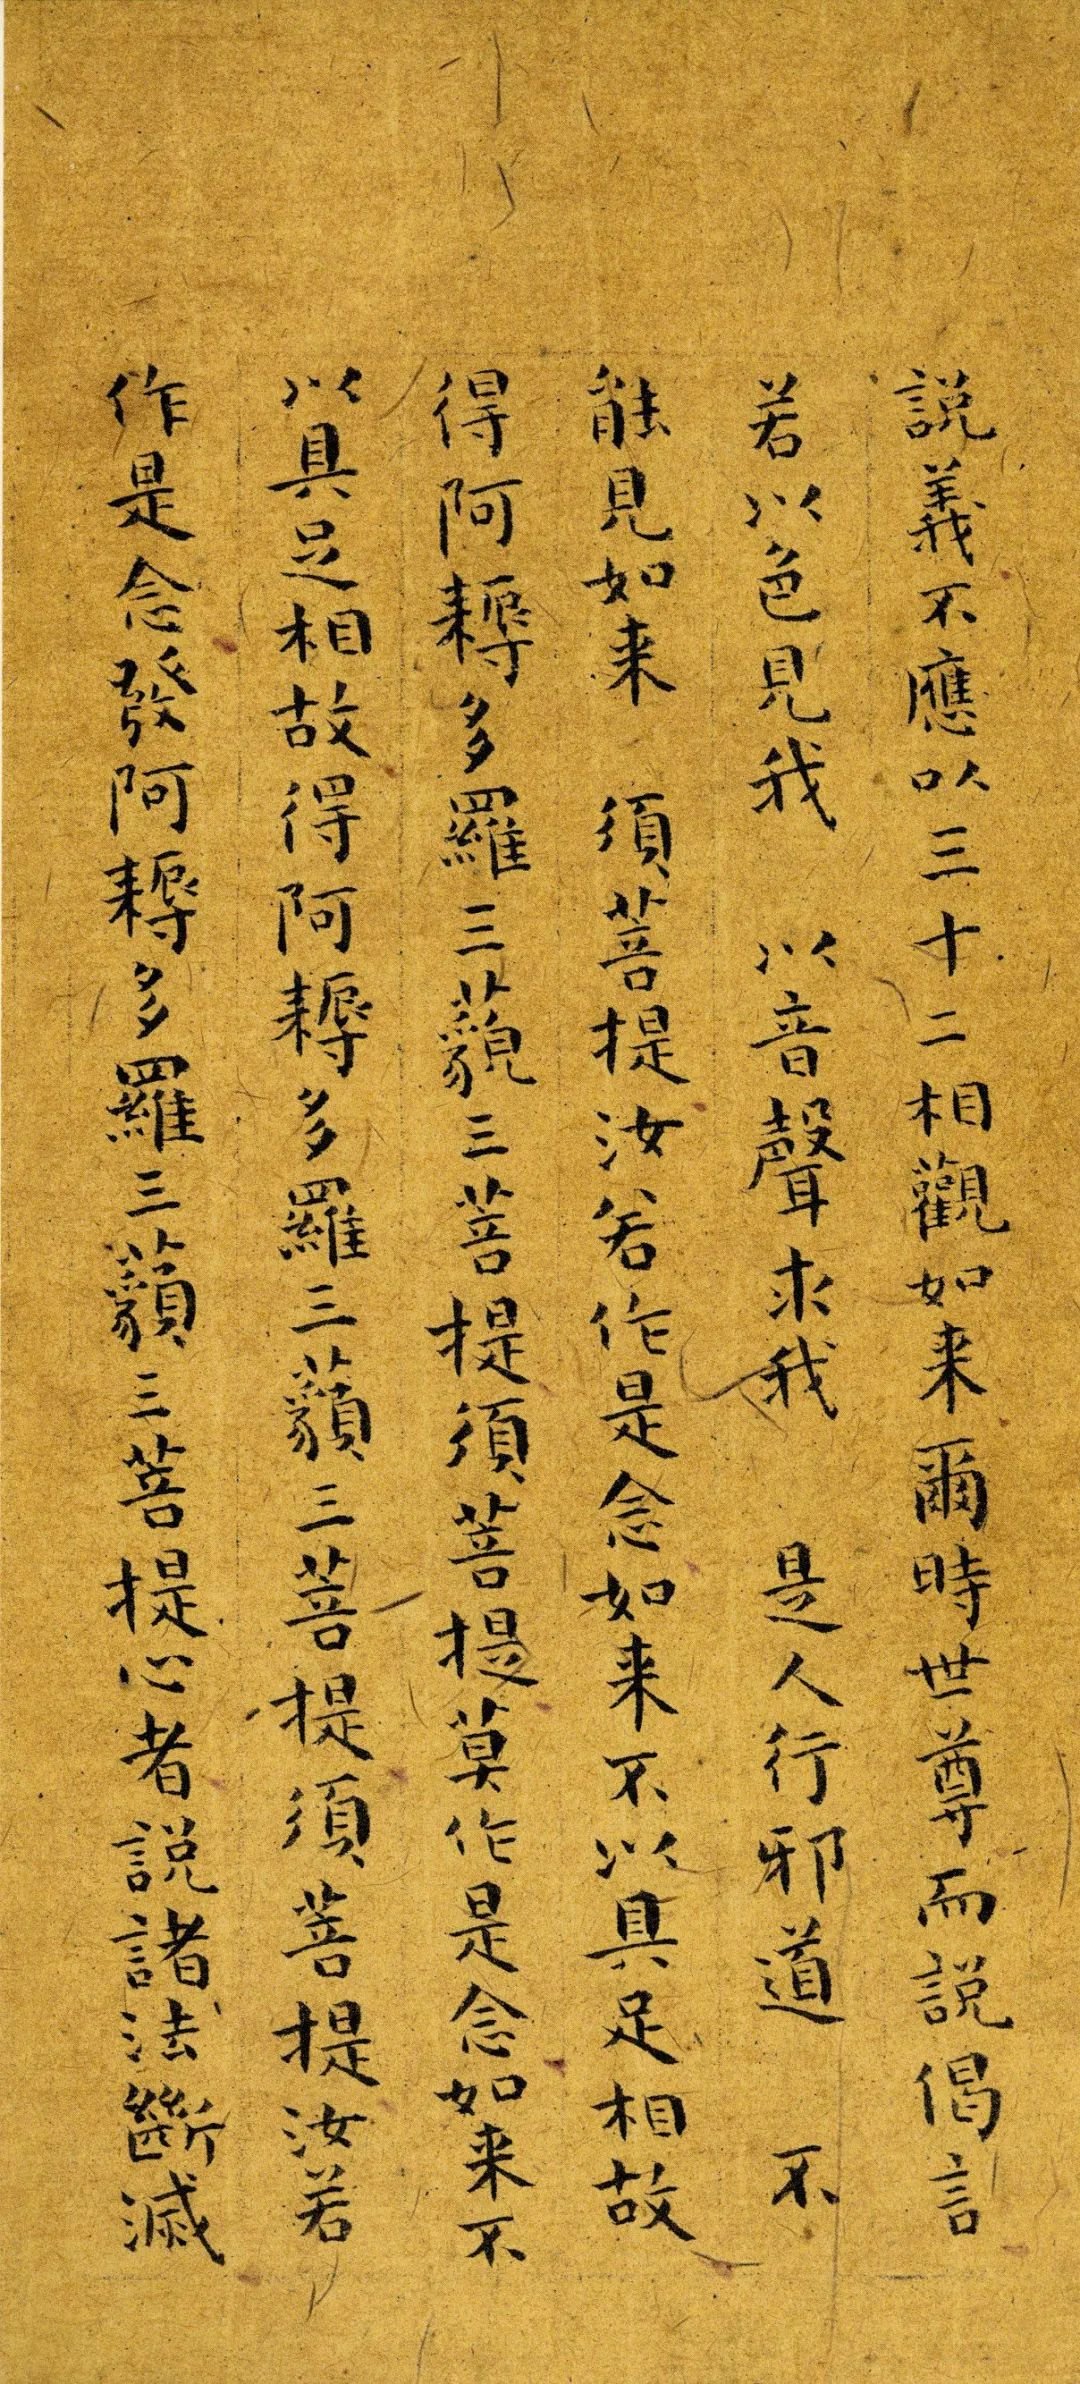 說義不應以三十二相觀如来爾時世尊而說偈言
若以色見我　以音聲求我　是人行邪道　不
能見如来　須菩提汝若作是念如来不以具足相故
得阿耨多羅三藐三菩提須菩提莫作是念如来不
以具足相故得阿耨多羅三藐三菩提須菩提汝若
作是念發阿耨多羅三藐三菩提心者說諸法斷滅